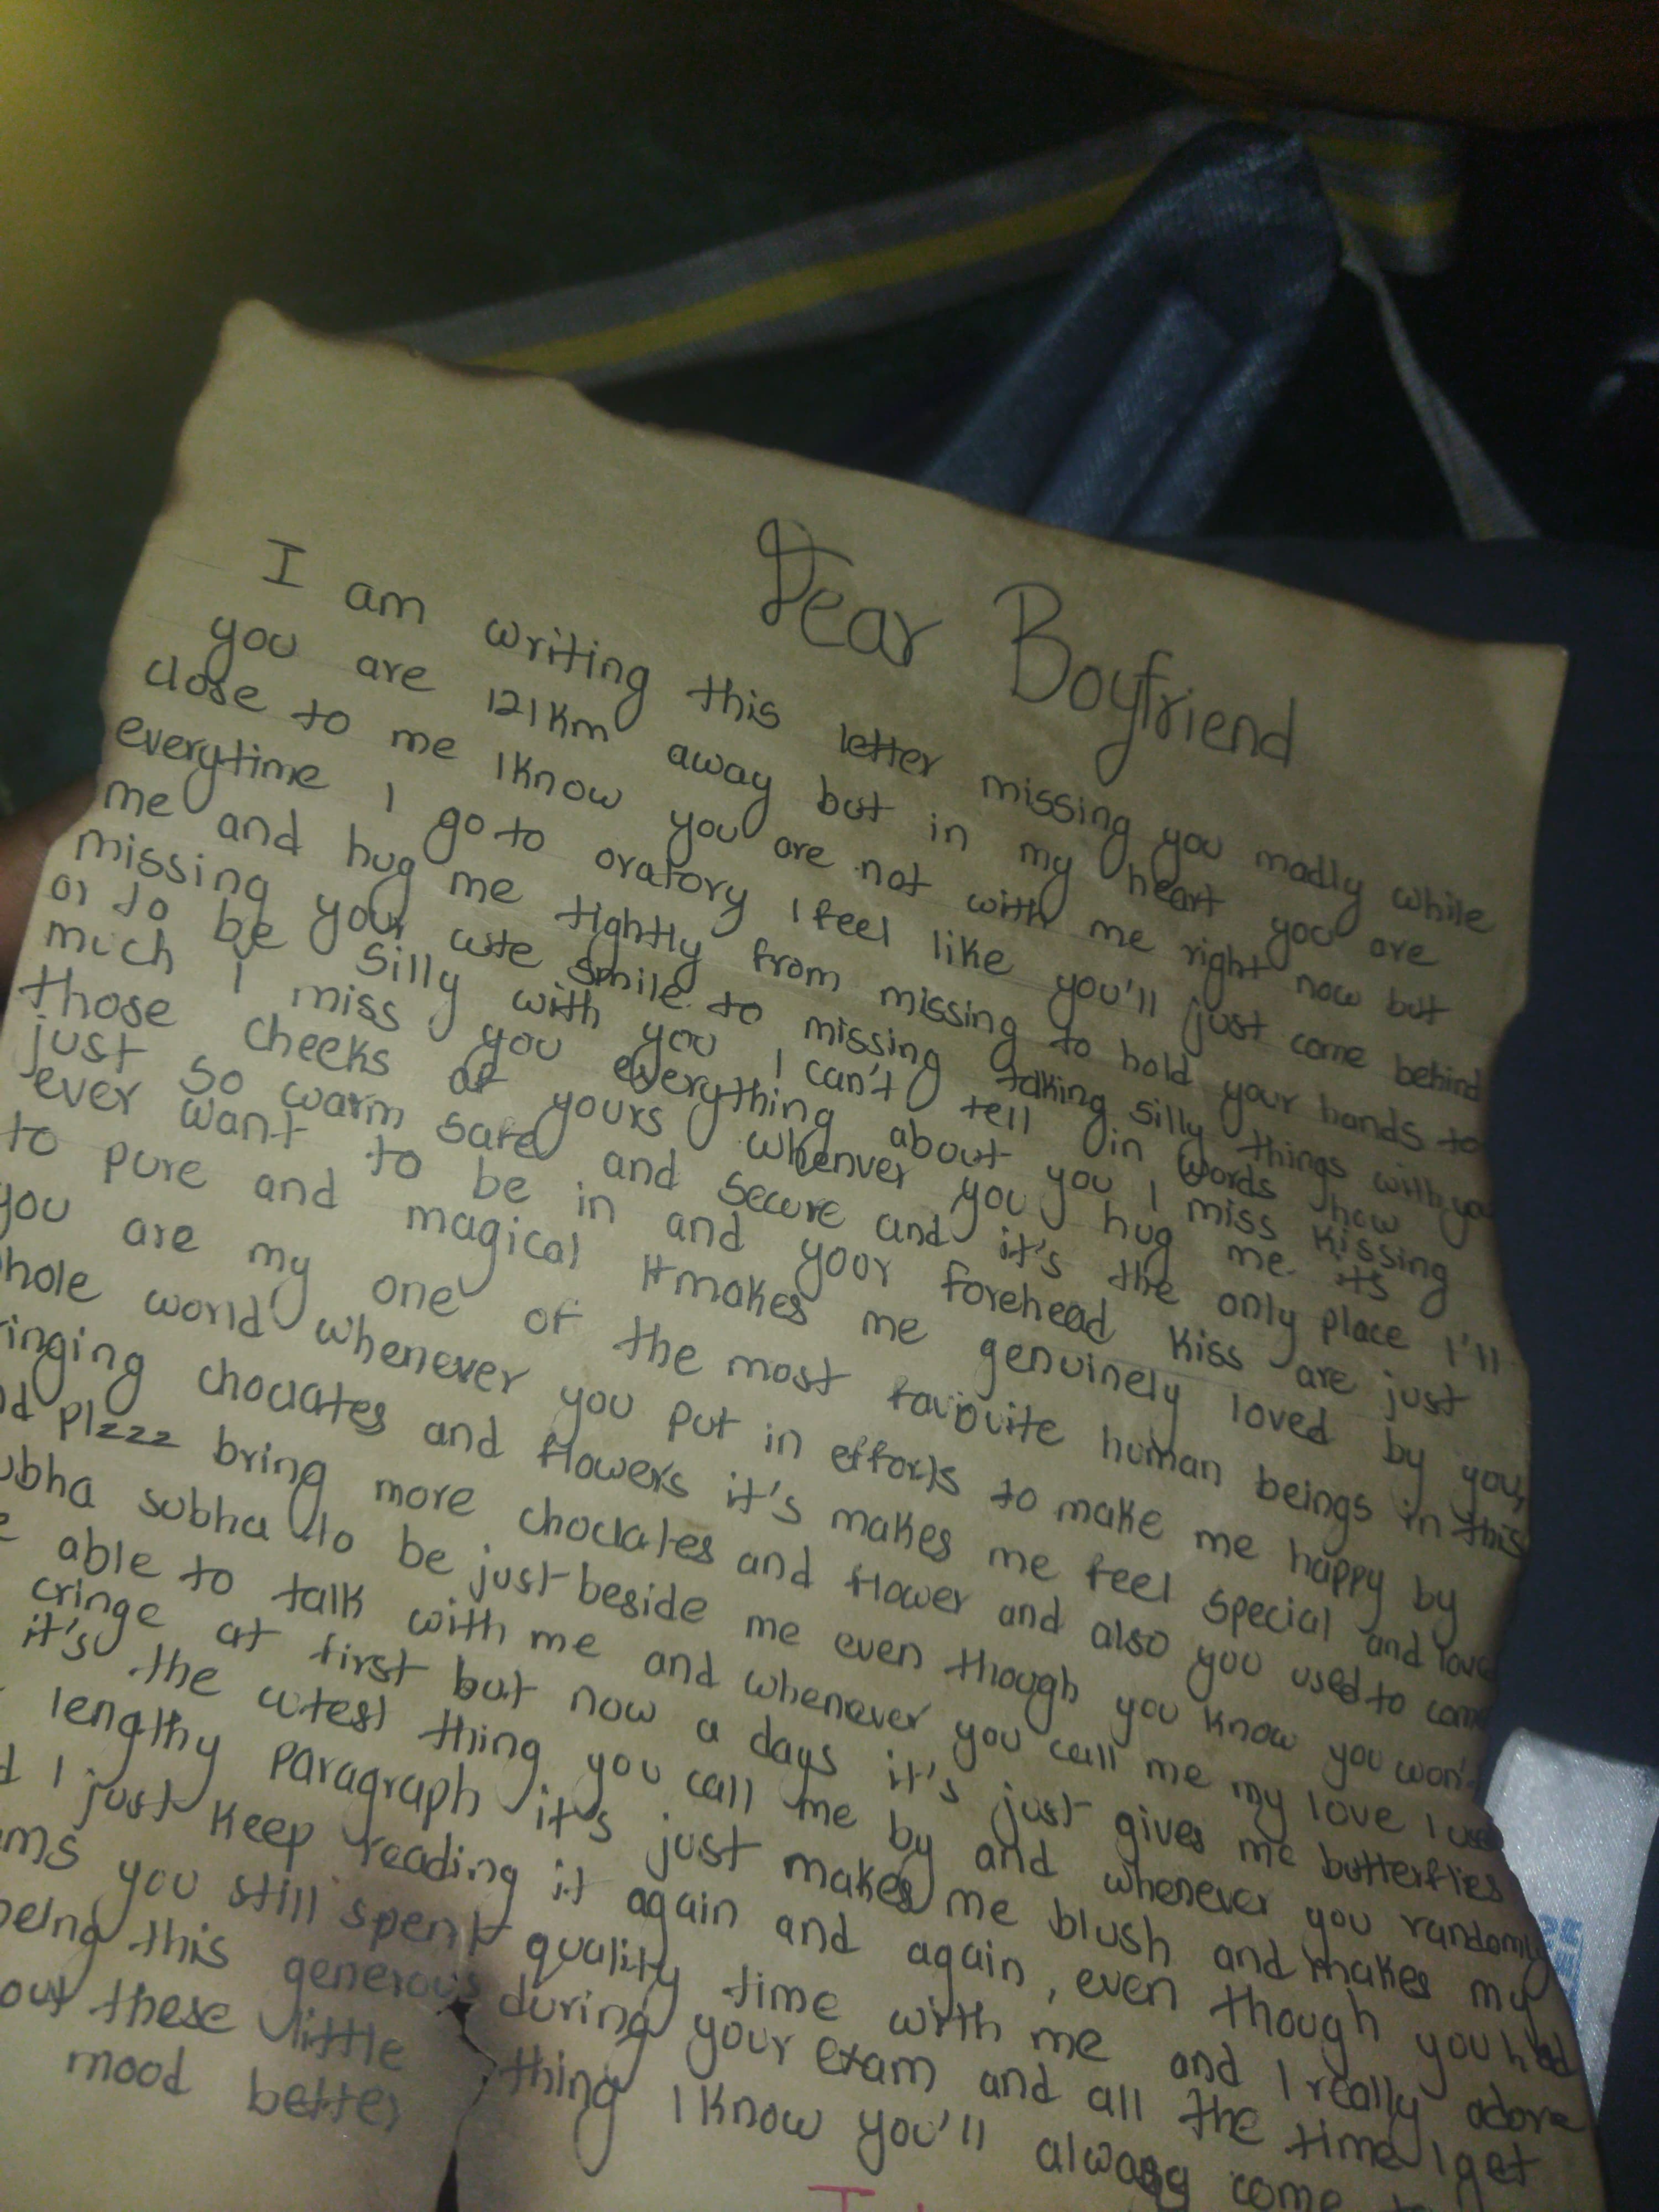 Dear Boyfriend
I am writing this letter missing you madly while
you are 121km away but in my heart you are
close to me I know you are not with me right now but
everytime I go to oratory I feel like you'll just come behind
me and hug me tightly from missing to hold your hands to
missing your cute smile to missing talking silly things with you
or to be silly with you I can't tell in words how
much I miss you everything about you I miss kissing
those cheeks of yours whenver you hug me its
just so warm safe and secure and it's the only place I'll
ever want to be in and your forehead kiss are just
to pure and magical It makes me genuinely loved by you,
you are my one of the most favouite human beings in this
hole world whenever you put in efforts to make me happy by
ringing choclates and flowers it's makes me feel special and love
d plzzz bring more choclates and flower and also you used to come
ubha subha to be just beside me even though you know you won't
e able to talk with me and whenever you call me my love I use
cringe at first but now a days it's just gives me butterflies
it's the cutest thing you call me by and whenever you randomly
lengthy paragraph it's just makes me blush and makes my
d I just keep reading it again and again, even though you had
ms you still spent quality time with me and I really adore
being this generous during your exam and all the time I get
out these little thing I know you'll always come
mood better